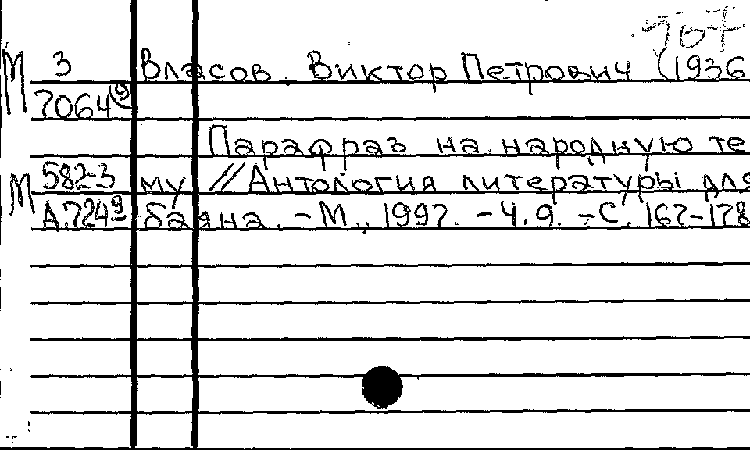 907
М З Власов Виктор Петрович (1936
7064(9)
Парафраз на народную те
М 582-3 му // Антология литературы для
А.7249 баяна. - М., 1997. - Ч.9. - С. 167-178